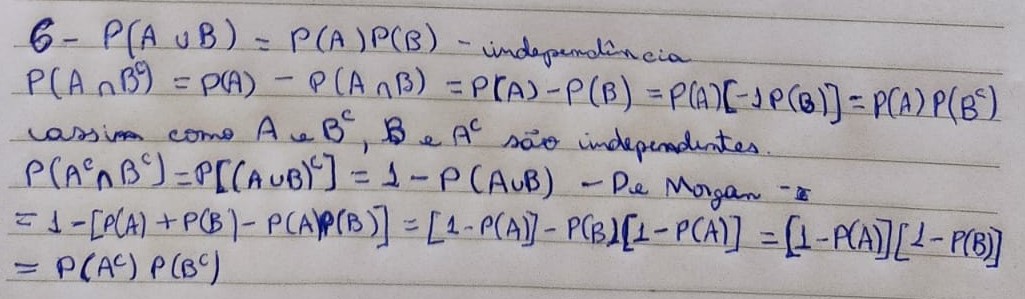 6 - P(A ∪ B) = P(A)P(B) - independência
P(A ∩ B^c) = P(A) - P(A ∩ B) = P(A) - P(B) = P(A)[-1P(B)] = P(A)P(B^c)
assim como A e B^c, B e A^c são independentes.
P(A^c ∩ B^c) = P[(A ∪ B)^c] = 1 - P(A ∪ B) - De Morgan -
= 1 - [P(A) + P(B) - P(A)P(B)] = [1 - P(A)] - P(B)[1 - P(A)] = [1 - P(A)][1 - P(B)]
= P(A^c) P(B^c)